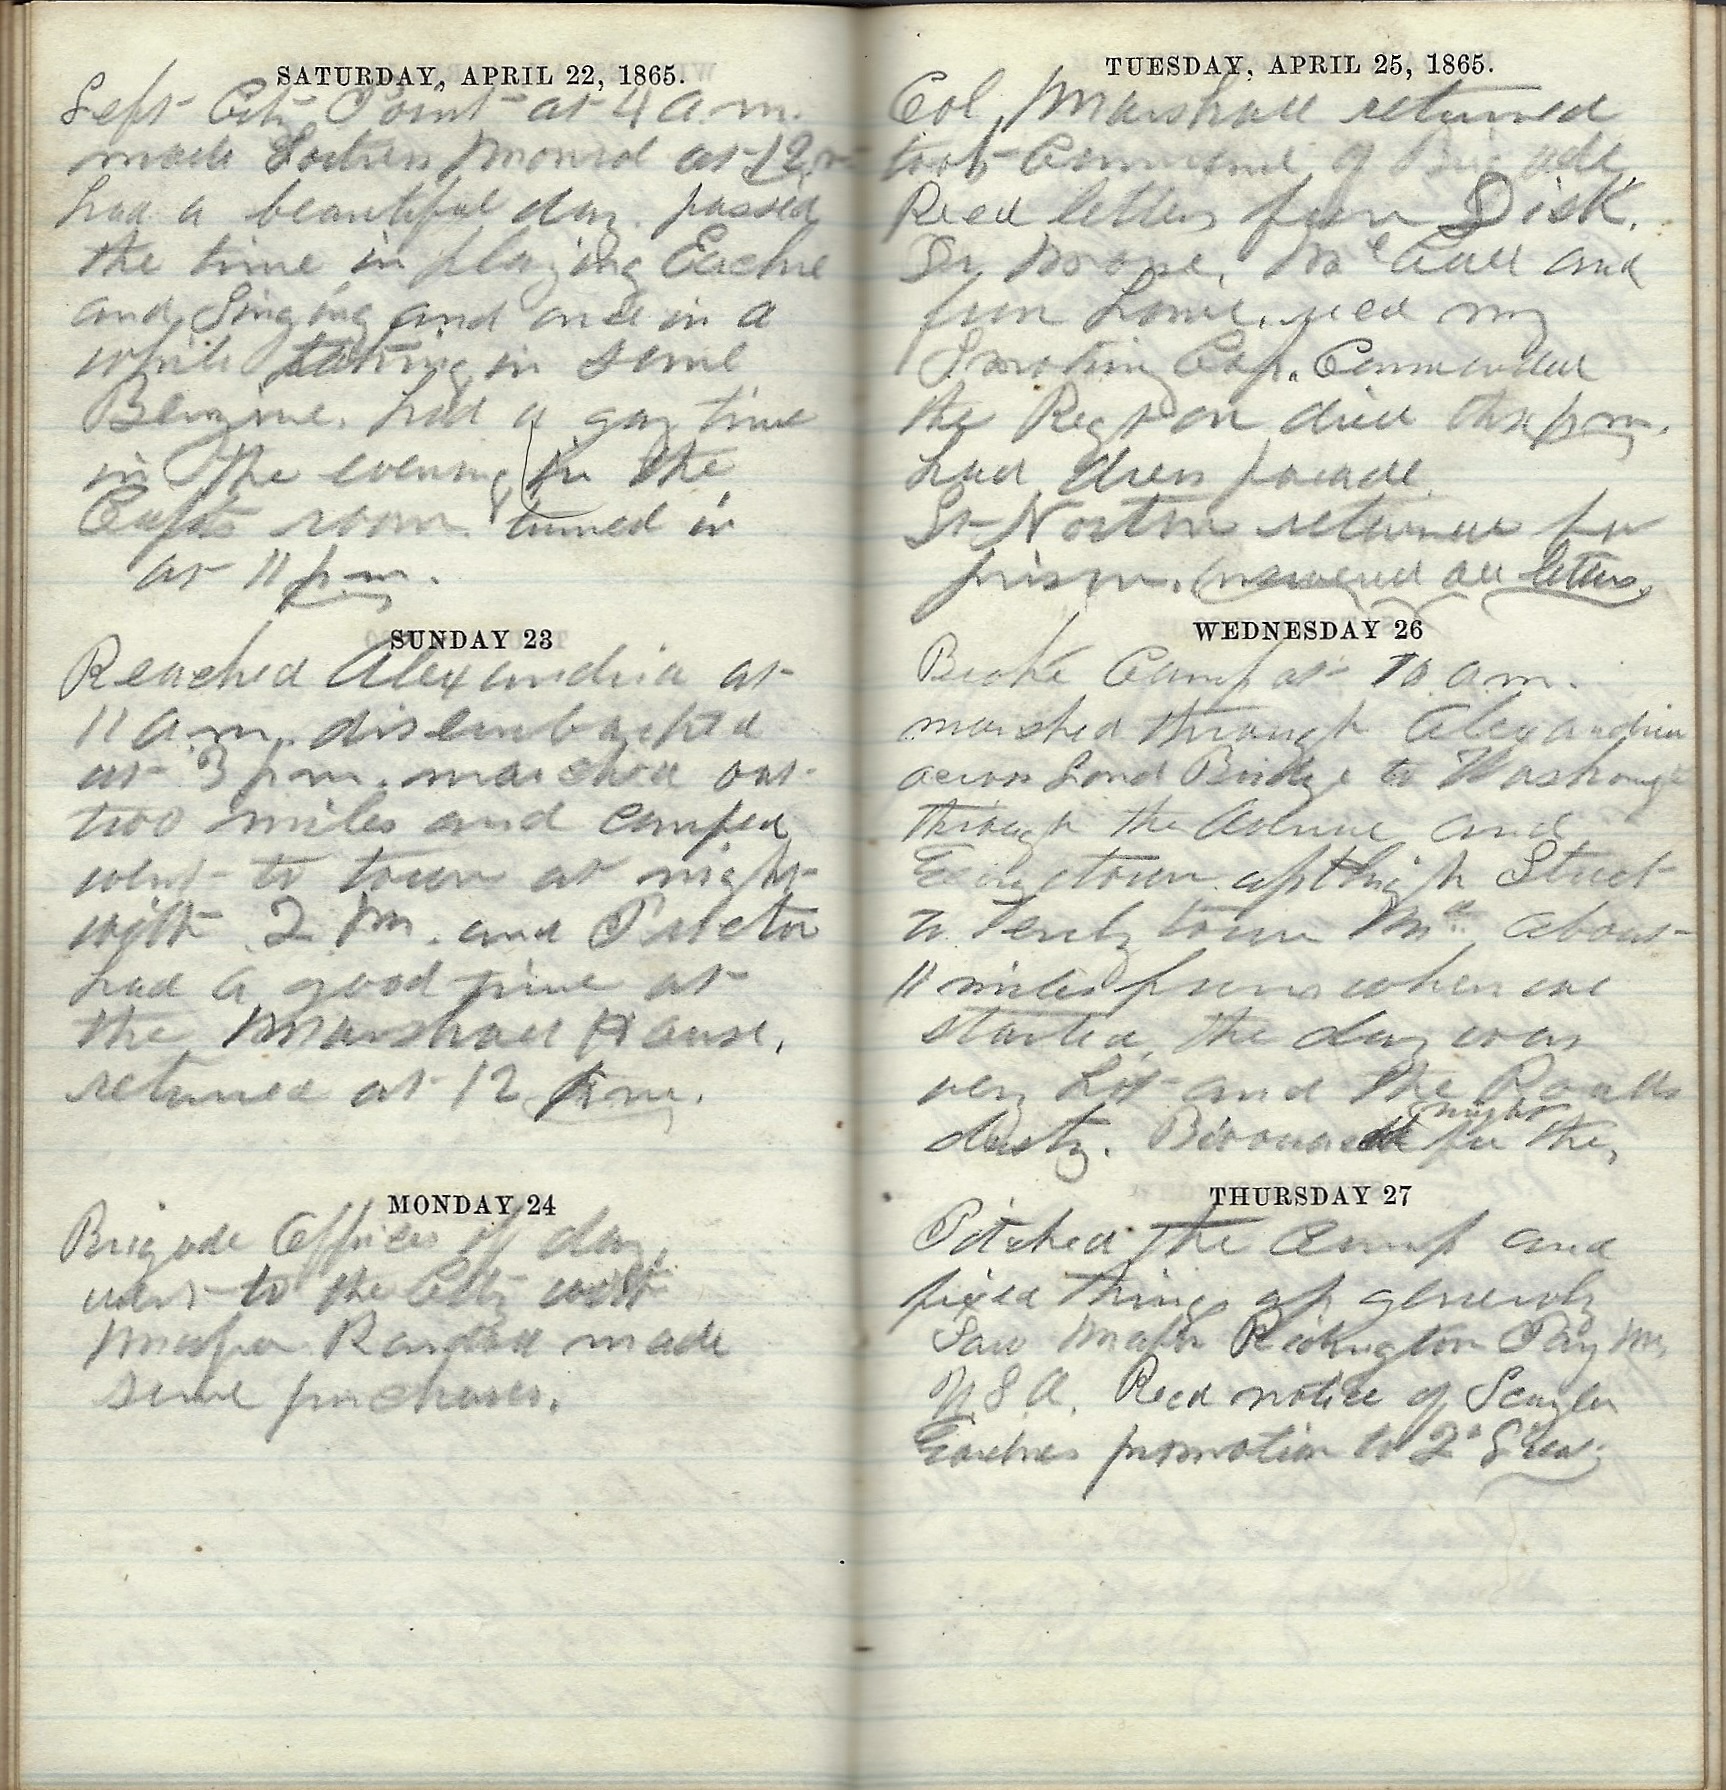 SATURDAY, APRIL 22, 1865.
Left City Point at 4 a.m.
made Fortress Monrod at 12 m
had a beautiful day. passed
the time in playing Euchre
and Singing and once in a
while taking in some
Benzine. had a gay time
in the evening in the
Capts room. turned in
at 11 p.m.
SUNDAY 23
Reached Alexandria at
11 a.m. disembarked
at 3 p.m. marched out
two miles and camped
went to town at night
with 2. M. and Proctor
had a good time at
the Marshall House.
returned at 12 p.m.
MONDAY 24
Brigade Officer of day,
went to the City with
Major Randall made
some purchases.
TUESDAY, APRIL 25, 1865.
Col Marshall returned
took Command of Brigade,
Recd letters from Disk.
Dr Morse, McCall and
from home. recd my
Smoking Cap. Commanded
the Regt on drill this p.m.
had dress parade
Lt Norton returned fr
prison. answered all letters.
WEDNESDAY 26
Broke Camp at 10 a.m.
marched through Alexandria
across Long Bridge to Washingt
through the Avenue and
Georgetown up High Street
to Tenlytown Md. about
11 miles from where we
started, the day was
very hot and the Roads
dusty. Bivouacd for the night
THURSDAY 27
Pitched the Camp and
fixed things up generaly
Saw Major Pay Mr.
U.S.A. Recd notice of
promotion to 2d Lieut.